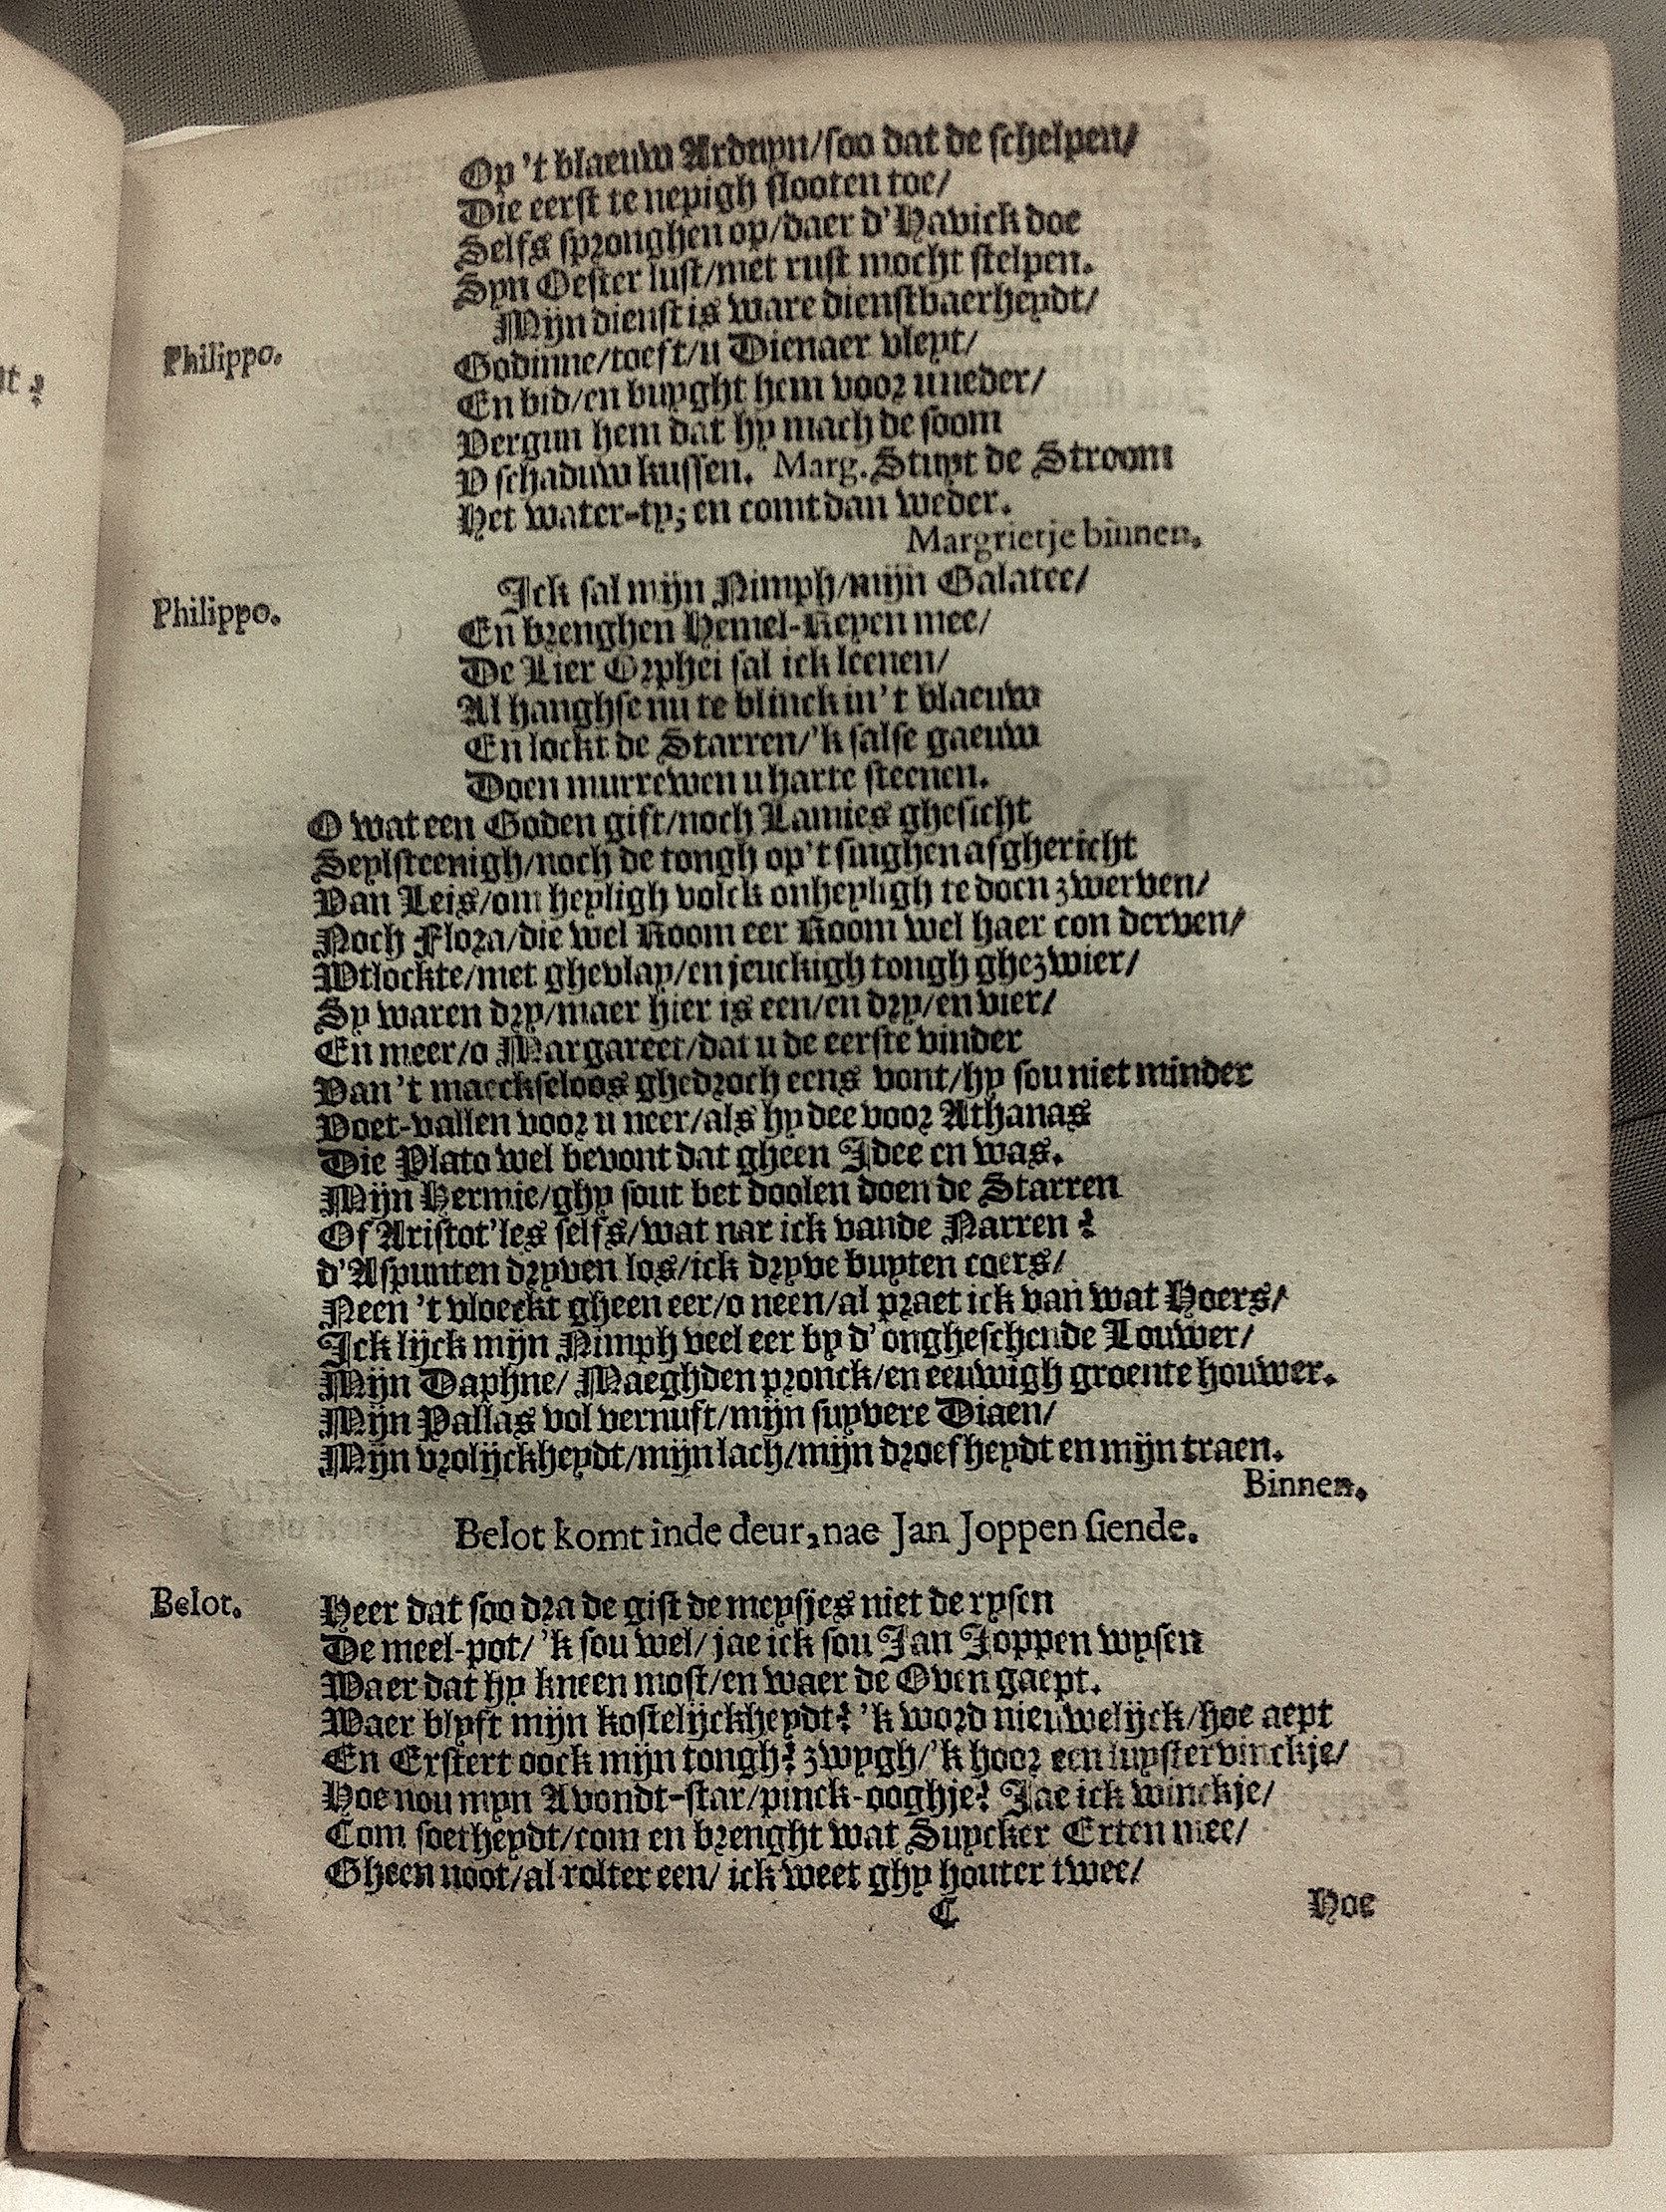 Op 't blaeuw Arduyn/soo dat de schelpen/
Die eerst te nepigh slooten toe/
Selfs spronghen op/daer d'Havick doe
Syn Oester lust/met rust mocht stelpen.
Philippo. Mijn dienst is ware dienstbaerheydt/
Godinne/toeft/u Dienaer vleyt/
En bid/en buyght hem voor u neder/
Vergun hem dat hy mach de soom
V schaduw kussen. Marg. Stuyt de Stroom
Het water-ty; en comt dan weder.
Margrietje binnen.
Philippo. Ick sal mijn Nimph/mijn Galatee/
En brenghen Hemel-Reyen mee/
De Lier Orphei sal ick leenen/
Al hanghse nu te blinck in 't blaeuw
En lockt de Starren/'k salse gaeuw
Doen murrewen u harte steenen.
O wat een Goden gift/noch Lamies ghesicht
Seylsteenigh/noch de tongh op 't singhen afghericht
Van Leis/om heyligh volck onheyligh te doen zwerven/
Noch Flora/die wel Room eer Room wel haer con derven/
Wtlockte/met ghevlay/en jeuckigh tongh ghezwier/
Sy waren dry/maer hier is een/en dry/en vier/
En meer/o Margareet/dat u de eerste vinder
Van 't maeckseloos ghedroch eens vont/hy sou niet minder
Voet-vallen voor u neer/als hy dee voor Athanas
Die Plato wel bevont dat gheen Idee en was.
Mijn Hermie/ghy sout bet doolen doen de Starren
Of Aristot'les selfs/wat nar ick vande Narren?
d'Aspunten dryven los/ick dryve buyten coers/
Neen 't vloeckt gheen eer/o neen/al praet ick van wat Hoers/
Ick lijck mijn Nimph veel eer by d'ongheschende Louwer/
Mijn Daphne/ Maeghden pronck/en eeuwigh groente houwer.
Mijn Pallas vol vernuft/mijn suyvere Diaen/
Mijn vrolijckheydt/mijn lach/mijn droefheydt en mijn traen.
Binnen.
Belot komt inde deur, nae Jan Joppen siende.
Belot. Heer dat soo dra de gist de meysjes niet de rysen
De meel-pot/'k sou wel/jae ick sou Jan Joppen wysen
Waer dat hy kneen most/en waer de Oven gaept.
Waer blyft mijn kostelijckheydt? 'k word nieuwelijck/hoe aept
En Erstert oock mijn tongh? zwygh/'k hoor een luystervinckje/
Hoe nou myn Avondt-star/pinck-ooghje? Jae ick winckje/
Com soetheydt/com en brenght wat Suycker Erten mee/
Gheen noot/al rolter een/ ick weet ghy houter twee/
C
Hoe